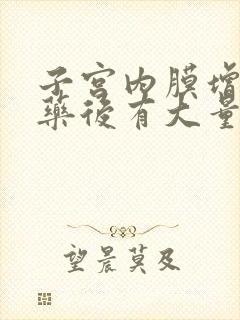 子宫内膜增
藥後有大量
望晨莫及